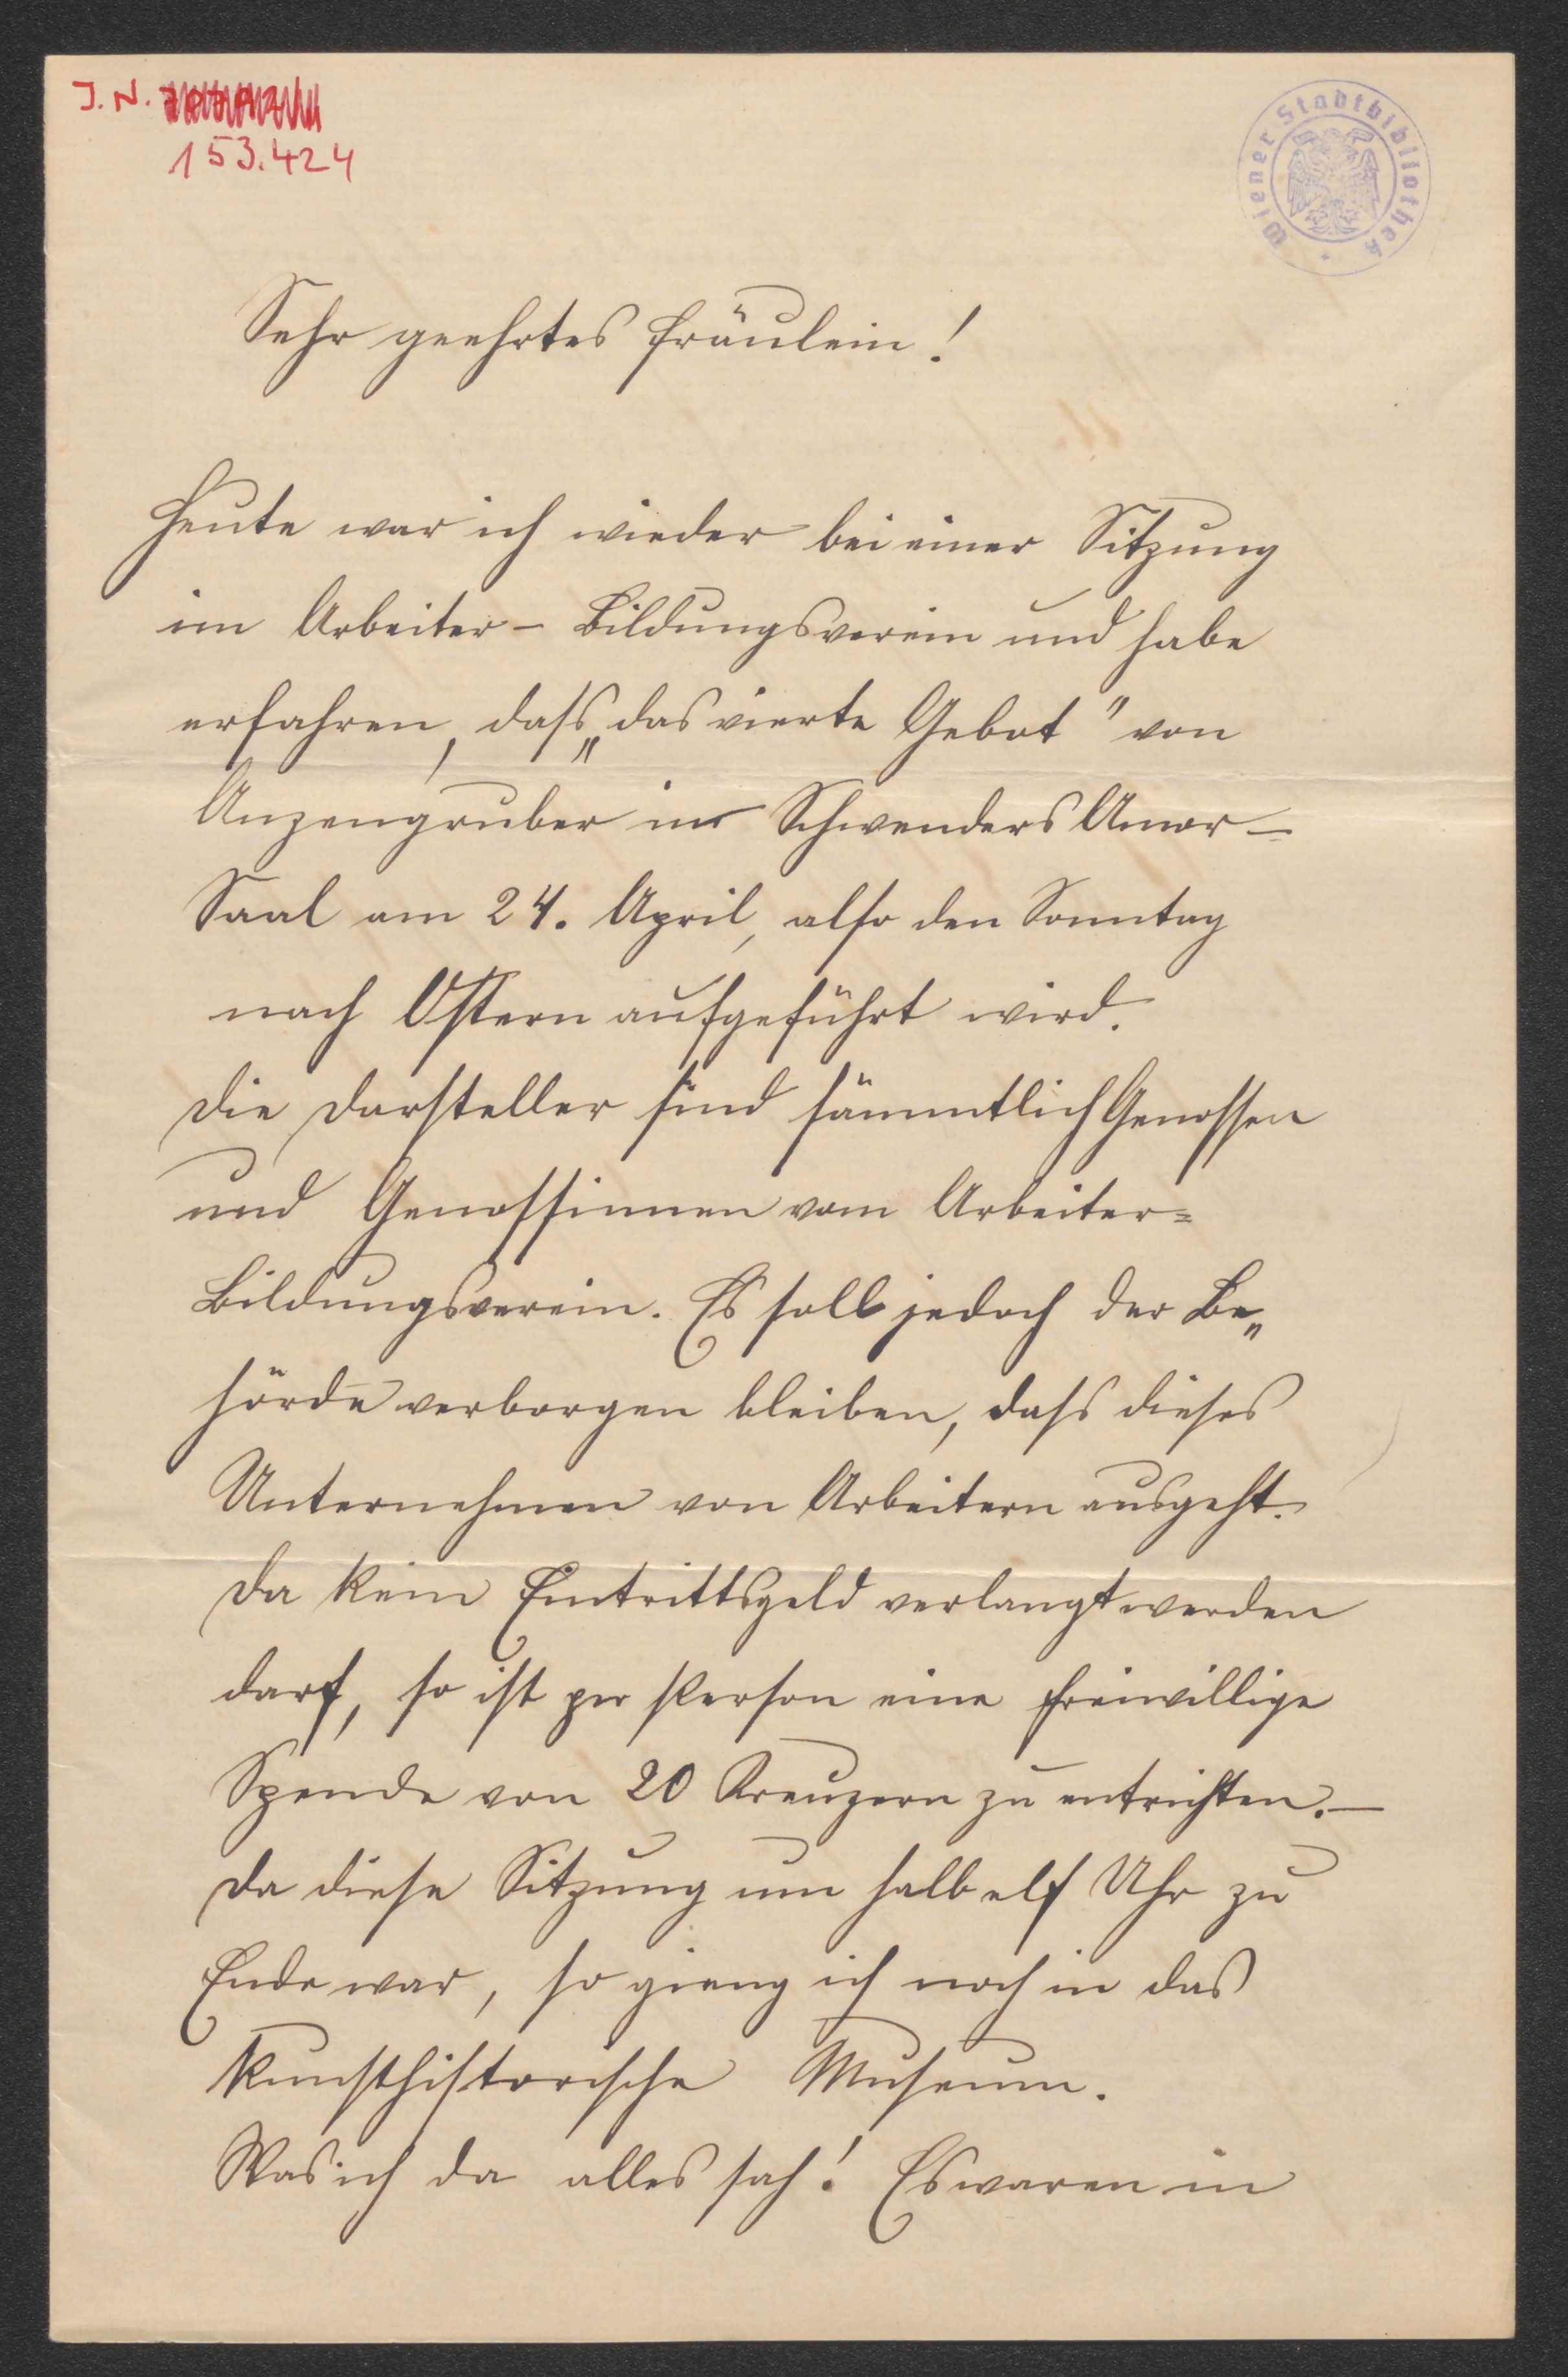 J. N.
153.424
Wiener Stadtbibliothek
Sehr geehrtes Fräulein!
Heute war ich wieder bei einer Sitzung
im Arbeiter- Bildungsverein und habe
erfahren, dass „das vierte Gebot" von
Anzengruber im Schwenders Amor-
Saal am 24. April, also den Sonntag
nach Ostern aufgeführt wird.
Die Darsteller sind sämmtlich Genossen
und Genossinnen vom Arbeiter=
Bildungsverein. Es soll jedoch der Be„
hörde verborgen bleiben, dass dieses
Unternehmen von Arbeitern ausgeht.
Da kein Eintrittsgeld verlangt werden
darf, so ist per Person eine freiwillige
Spende von 20 Kreuzern zu entrichten.—
Da diese Sitzung um halb elf Uhr zu
Ende war, so gieng ich noch in das
kunsthistorische Museum.
Was ich da alles sah! Es waren in